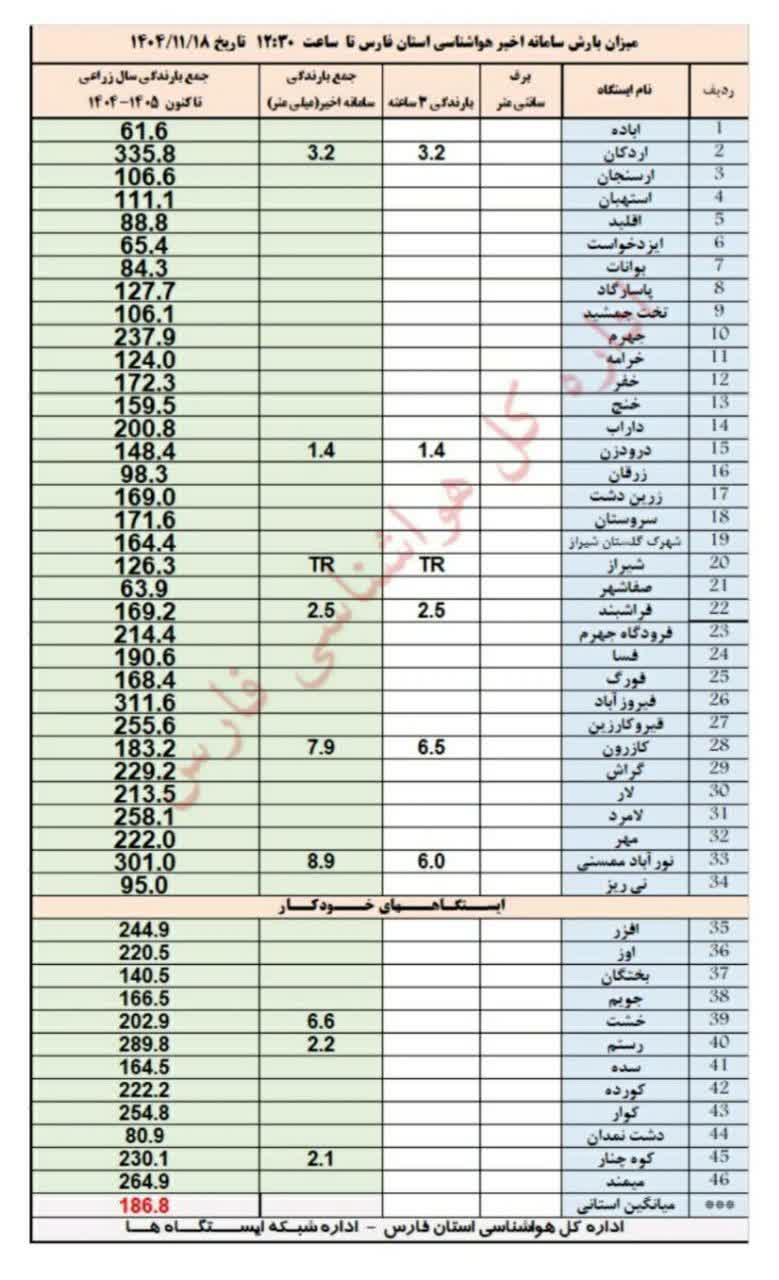 میزان بارش سامانه اخیر هواشناسی استان فارس تا ساعت ۱۲:۳۰ تاریخ ۱۴۰۴/۱۱/۱۸
ردیف نام ایستگاه برف سانتی متر بارندگی ۳ ساعته جمع بارندگی سامانه اخیر(میلی متر) جمع بارندگی سال زراعی تاکنون ۱۴۰۵-۱۴۰۴
۱ اباده 61.6
۲ اردکان 3.2 3.2 335.8
۳ ارسنجان 106.6
۴ استهبان 111.1
۵ اقلید 88.8
۶ ایزدخواست 65.4
۷ بوانات 84.3
۸ پاسارگاد 127.7
۹ تخت جمشید 106.1
۱۰ جهرم 237.9
۱۱ خرامه 124.0
۱۲ خفر 172.3
۱۳ خنج 159.5
۱۴ داراب 200.8
۱۵ درودزن 1.4 1.4 148.4
۱۶ زرقان 98.3
۱۷ زرین دشت 169.0
۱۸ سروستان 171.6
۱۹ شهرک گلستان شیراز 164.4
۲۰ شیراز TR TR 126.3
۲۱ صفاشهر 63.9
۲۲ فراشبند 2.5 2.5 169.2
۲۳ فرودگاه جهرم 214.4
۲۴ فسا 190.6
۲۵ فورگ 168.4
۲۶ فیروز آباد 311.6
۲۷ قیروکارزین 255.6
۲۸ کازرون 6.5 7.9 183.2
۲۹ گراش 229.2
۳۰ لار 213.5
۳۱ لامرد 258.1
۳۲ مهر 222.0
۳۳ نور آباد ممسنی 6.0 8.9 301.0
۳۴ نی ریز 95.0
ایستگاههای خودکار
۳۵ افزر 244.9
۳۶ اوز 220.5
۳۷ بختگان 140.5
۳۸ جویم 166.5
۳۹ خشت 6.6 202.9
۴۰ رستم 2.2 289.8
۴۱ سده 164.5
۴۲ کورده 222.2
۴۳ کوار 254.8
۴۴ دشت نمدان 80.9
۴۵ کوه چنار 2.1 230.1
۴۶ میمند 264.9
*** میانگین استانی 186.8
اداره کل هواشناسی استان فارس - اداره شبکه ایستگاه ها
اداره کل هواشناسی فارس